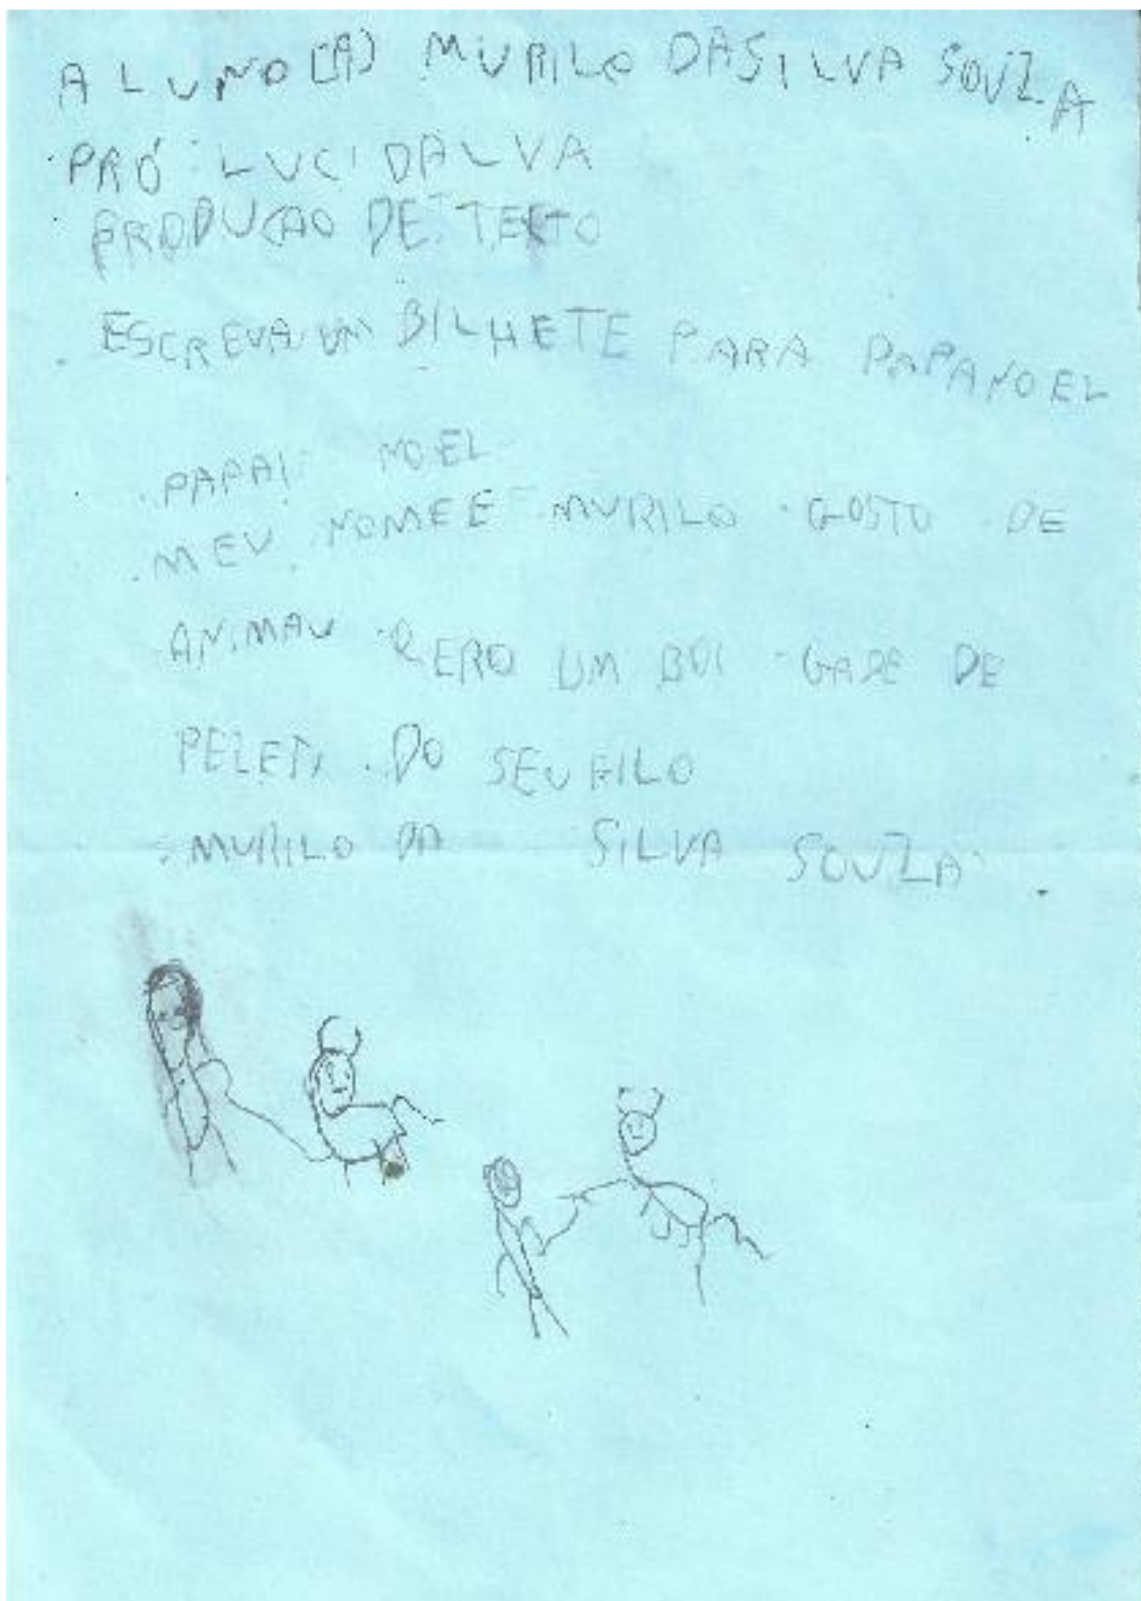 ALUNO(A) MURILO DASILVA SOUZA
PRÓ: LUCIDALVA
PRODUCAO DE TEXTO
ESCREVA UM BILHETE PARA PAPANOEL
PAPAI NOEL
MEU NOMEE MURILO GOSTO DE
ANIMAU QERO UM BOI DE
DO SEU FILO
MURILO DA SILVA SOUZA